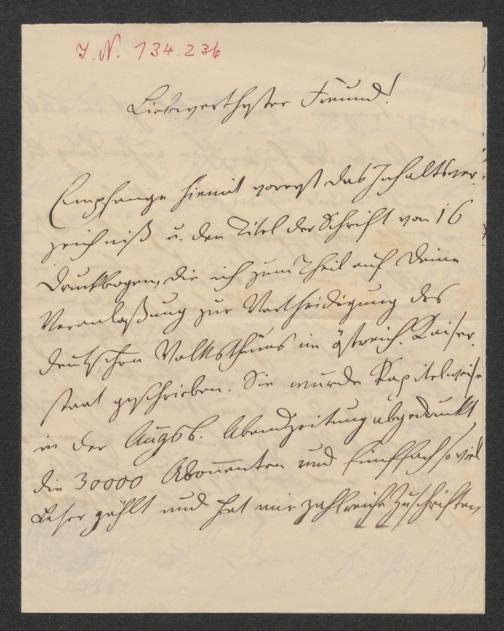 J. N. 134.236
Liebwerthester Freund!
Empfange hiemit vorerst das Inhaltsver-
zeichniß u. den Titel der Schrift von 16
Druckbogen, die ich zum Theil auf Deine
Veranlaßung zur Vertheidigung des
deutschen Volksthums im östreich. Kaiser-
staat geschrieben. Sie wurde kapitelweise
in der Augsb. Abendzeitung abgedruckt
die 30000 Abonnenten und fünffach so viel
Leser zählt und hat mir zahlreiche Zuschriften